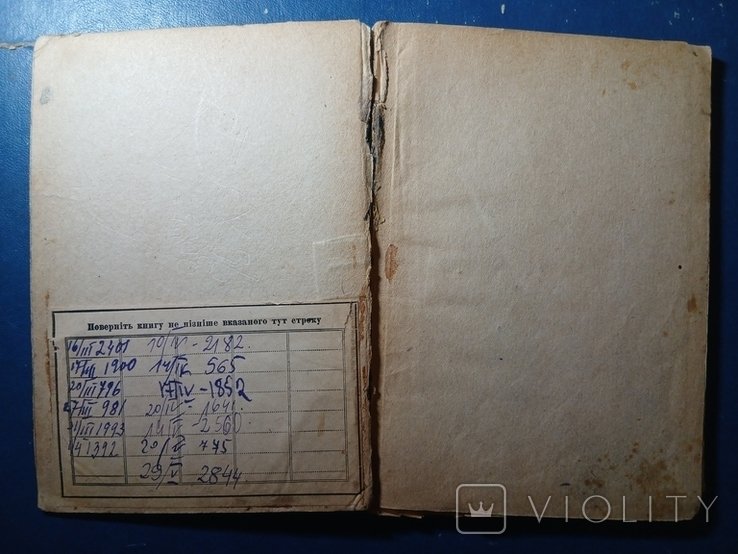 Поверніть книгу не пізніше вказаного тут строку
16/III 2401 10/IV - 2182.
17/III 1900 14/IV 565
20/III 796 17/IV - 1852
27/III 981 20/IV - 1641.
1993 14 - 2560
1392 775
29/V 2844
VIOLITY